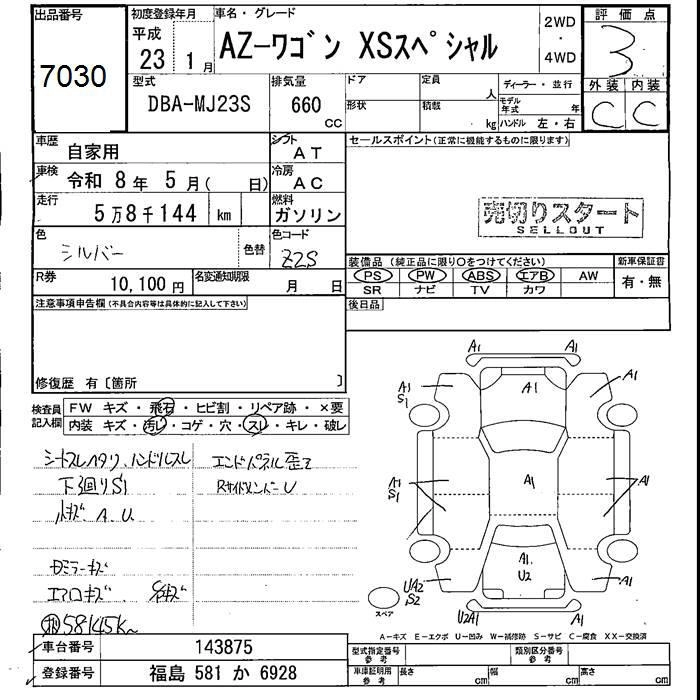 出品番号
7030
初度登録年月
平成
23 1月
車名・グレード
AZ-ワゴン XSスペシャル
2WD
・
4WD
評価点
3
外装 内装
C C
型式
DBA-MJ23S
排気量
660
cc
ドア
形状
定員
人
積載
kg
ディーラー・並行
モデル年式 年
ハンドル 左・右
車歴
自家用
シフト
AT
車検
令和 8年 5月( 日)
冷房
AC
走行
5万8千144 km
燃料
ガソリン
色
シルバー
色替
色コード
Z2S
R券
10,100円
名変通知期限
月 日
セールスポイント(正常に機能するものに限ります)
売切りスタート
SELLOUT
装備品(純正品に限り○をつけてください)
PS PW ABS エアB AW
SR ナビ TV カワ
新車保証書
有・無
後日品
注意事項申告欄(不具合内容等は具体的に記入して下さい)
修復歴 有〔箇所 〕
検査員
記入欄
FW キズ・飛石・ヒビ割・リペア跡・×要
内装 キズ・汚れ・コゲ・穴・スレ・キレ・破レ
シートスレヘタリ、ハンドルスレ
下廻りS1
A.U
エアロキズ
58145km
エンドパネル歪
RサイドメンバーU
A1
A1
A1
S1
A1
A1
A1
S1
A1
A1
A1
U2
UA2
S2
A1
U2A1
A1
スペア
A-キズ E-エクボ U-凹み W-補修跡 S-サビ C-腐食 XX-交換済
車台番号
143875
登録番号
福島 581 か 6928
型式指定番号
参考
類別区分番号
参考
車庫証明用
参考
長さ cm
幅 cm
高さ cm